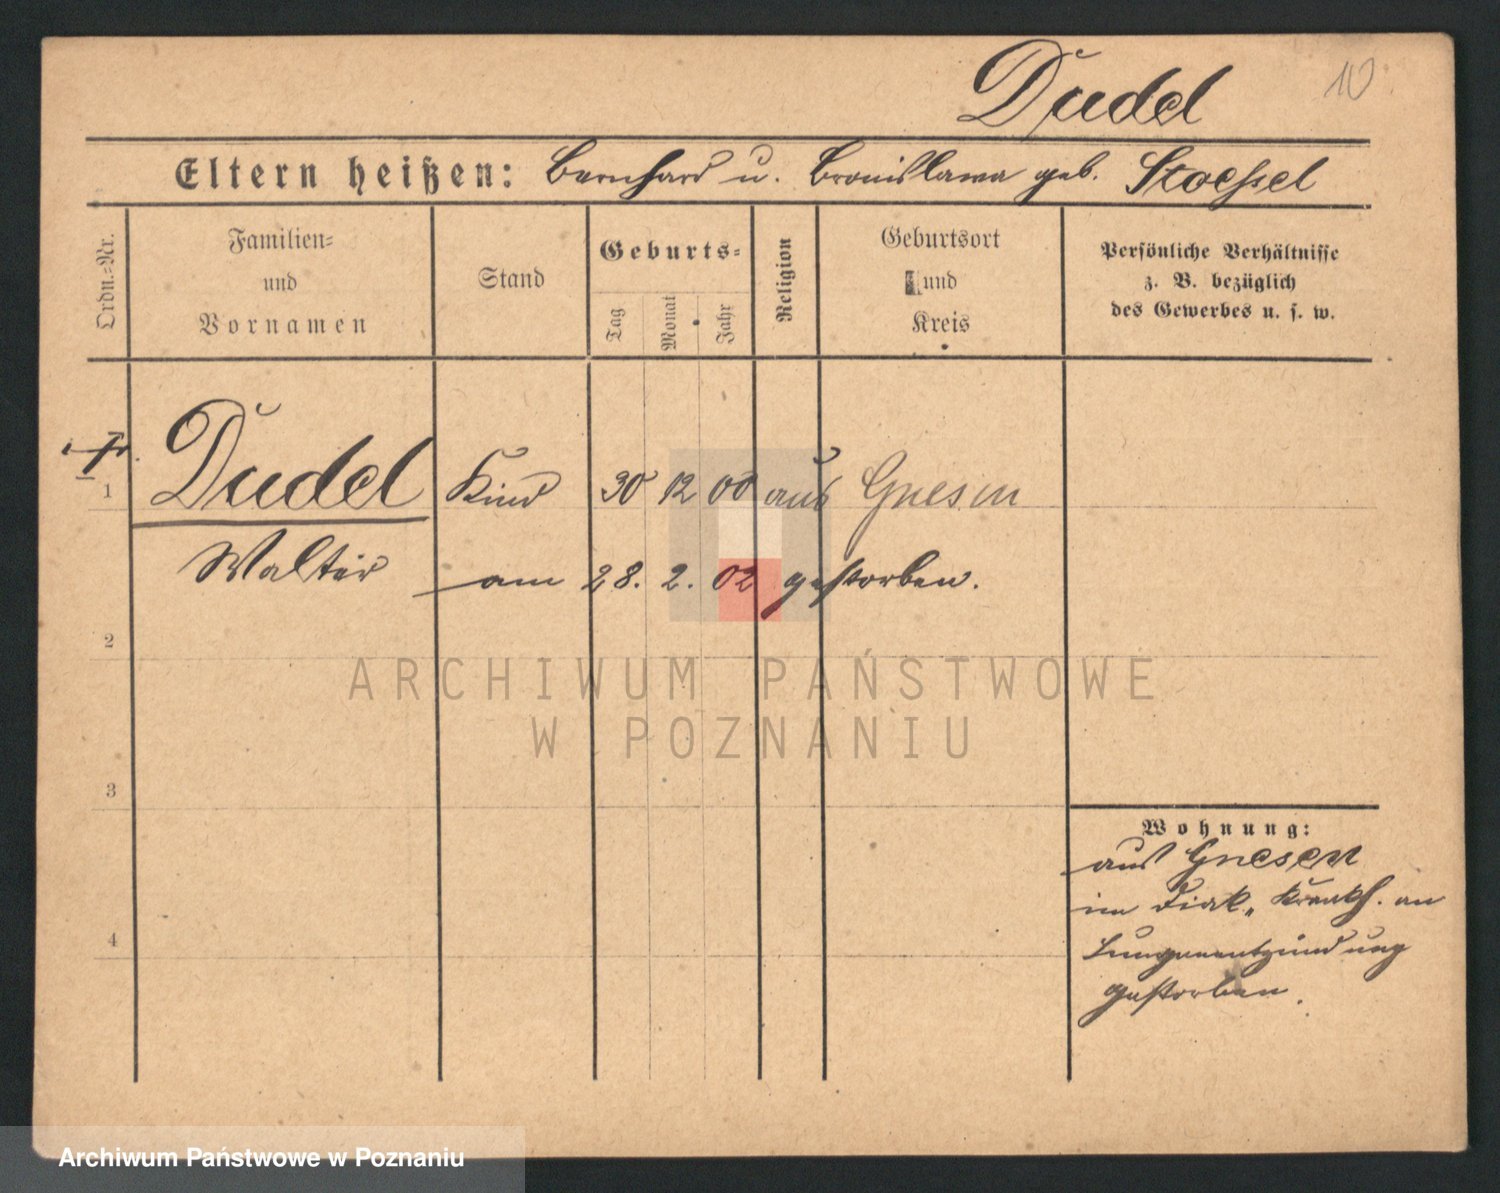 Dudel
10
Eltern heißen: Bernhard u. Bronislawa geb. Stoessel
Ordn.-Nr.
Familien-
und
Vornamen
Stand
Geburts-
Tag
Monat
Jahr
Religion
Geburtsort
und
Kreis
Persönliche Verhältnisse
z. B. bezüglich
des Gewerbes u. s. w.
1
Dudel Kind 30 12 00 aus Gnesen
Walter am 28. 2. 02 gestorben.
2
ARCHIWUM PAŃSTWOWE
W POZNANIU
3
Wohnung:
aus Gnesen
im Diak. Krankh. an
4
Lungenentzündung
gestorben.
Archiwum Państwowe w Poznaniu